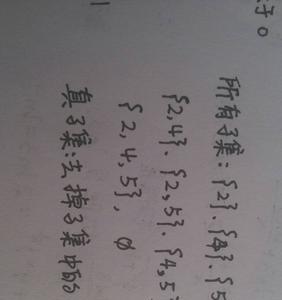 于0
1
所有子集:{2}.{4}.{5
{2,4}.{2,5}.{4,5}
{2,4,5},∅
真子集:去掉子集中的